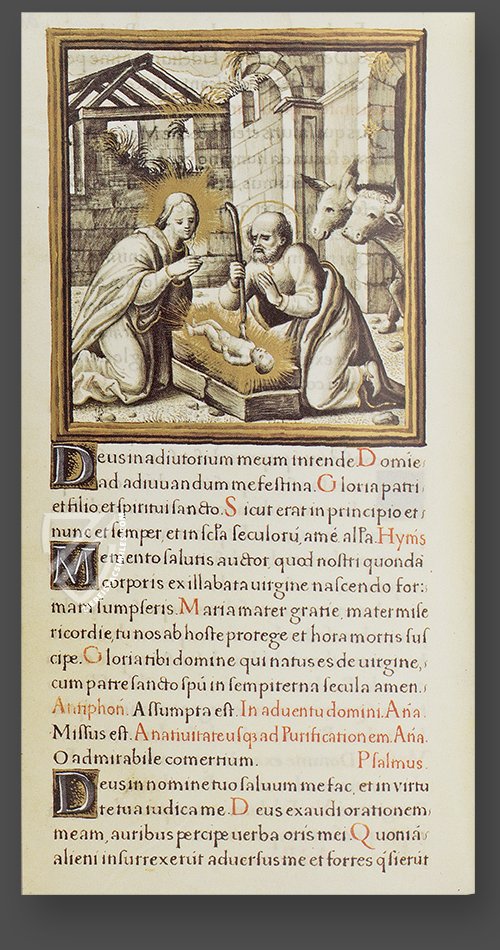 Deus in adiutorium meum intende. Domie
ad adiuuandum me festina. Gloria patri
et filio, et spiritui sancto. Sicut erat in principio et
nunc et semper, et in scl̄a seculorū, amē. all'a. Hyms
Memento salutis auctor, quod nostri quondā
corporis ex illabata uirgine nascendo for:
mam sumpseris. Maria mater gratie, mater mise
ricordie, tu nos ab hoste protege et hora mortis sus
cipe. Gloria tibi domine qui natus es de uirgine,
cum patre sancto spū in sempiterna secula amen.
Antiphon. Assumpta est. In aduentu domini. Aña.
Missus est. A natiuitate usq̃ ad Purificationem. Aña.
O admirabile comertium. Psalmus.
Deus in nomine tuo saluum me fac, et in virtu
te tua iudica me. Deus exaudi orationem
meam, auribus percipe uerba oris mei. Quoniā
alieni insurrexerūt aduersus me et fortes q̄sierūt